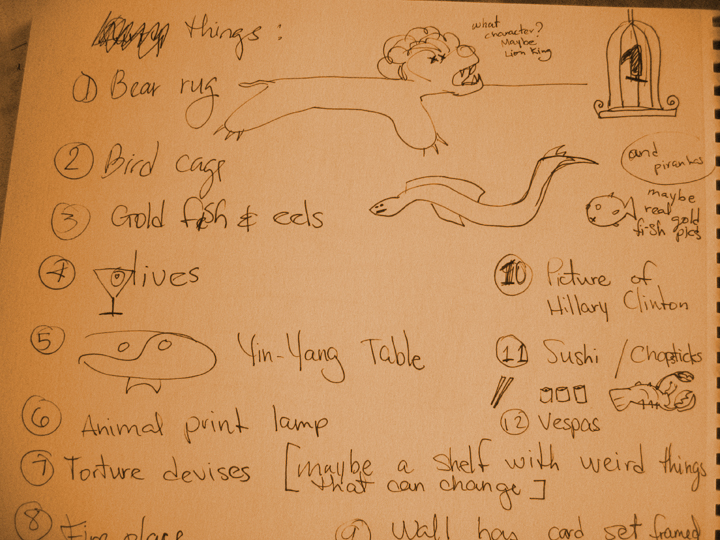 things :
① Bear rug
what
character?
Maybe
Lion King
1
② Bird cage
③ Gold fish & eels
and
piranhas
maybe
real
gold
fish pics
④ Olives
⑤ Yin-Yang Table
⑥ Animal print lamp
⑦ Torture devises [maybe a shelf with weird things
that can change]
⑧ Fire place
⑨ Wall has card set framed
⑩ Picture of
Hillary Clinton
⑪ Sushi / Chopsticks
⑫ Vespas